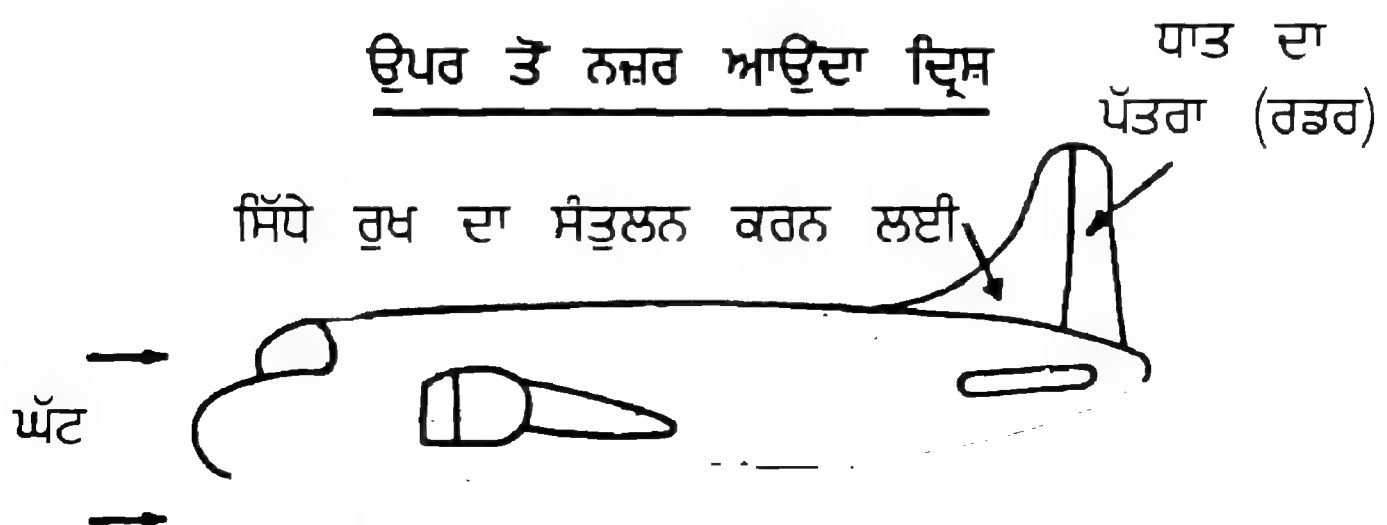 ਉਪਰ ਤੋਂ ਨਜ਼ਰ ਆਉਂਦਾ ਦ੍ਰਿਸ਼
ਧਾਤ ਦਾ
ਪੱਤਰਾ (ਰਡਰ)
ਸਿੱਧੇ ਰੁਖ ਦਾ ਸੰਤੁਲਨ ਕਰਨ ਲਈ
ਘੱਟ